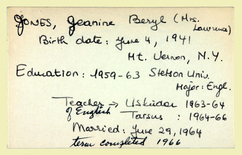 JONES, Jeanine Beryl (Mrs. Lawrence)
Birth date: June 4, 1941
Mt. Vernon, N.Y.
Education: 1959-63 Stetson Univ.
Major: Engl.
Teacher → Uskudar 1963-64
of English Tarsus : 1964-66
Married: June 29, 1964
term completed 1966